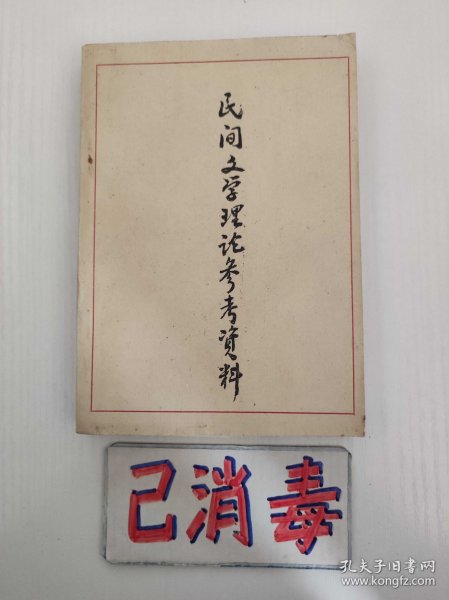 民间文学理论参考资料
已消毒
孔夫子旧书网
www.kongfz.com